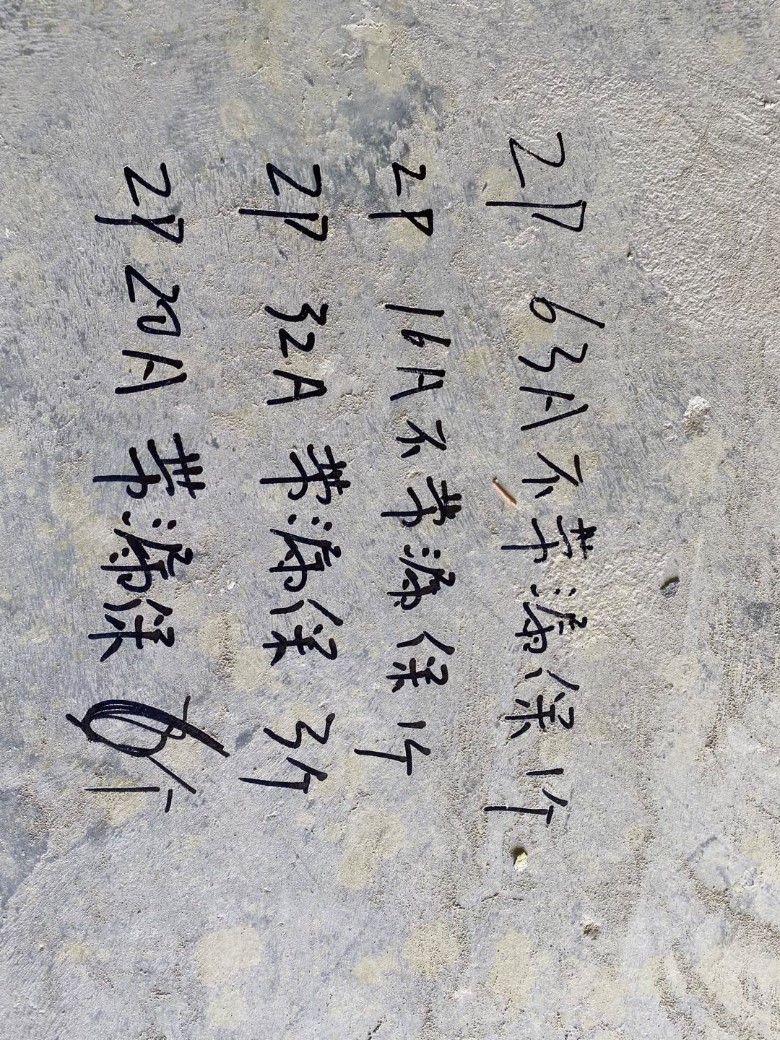 2P 63A不带漏保1个
2P 16A不带漏保1个
2P 32A带漏保3个
2P 20A带漏保6个